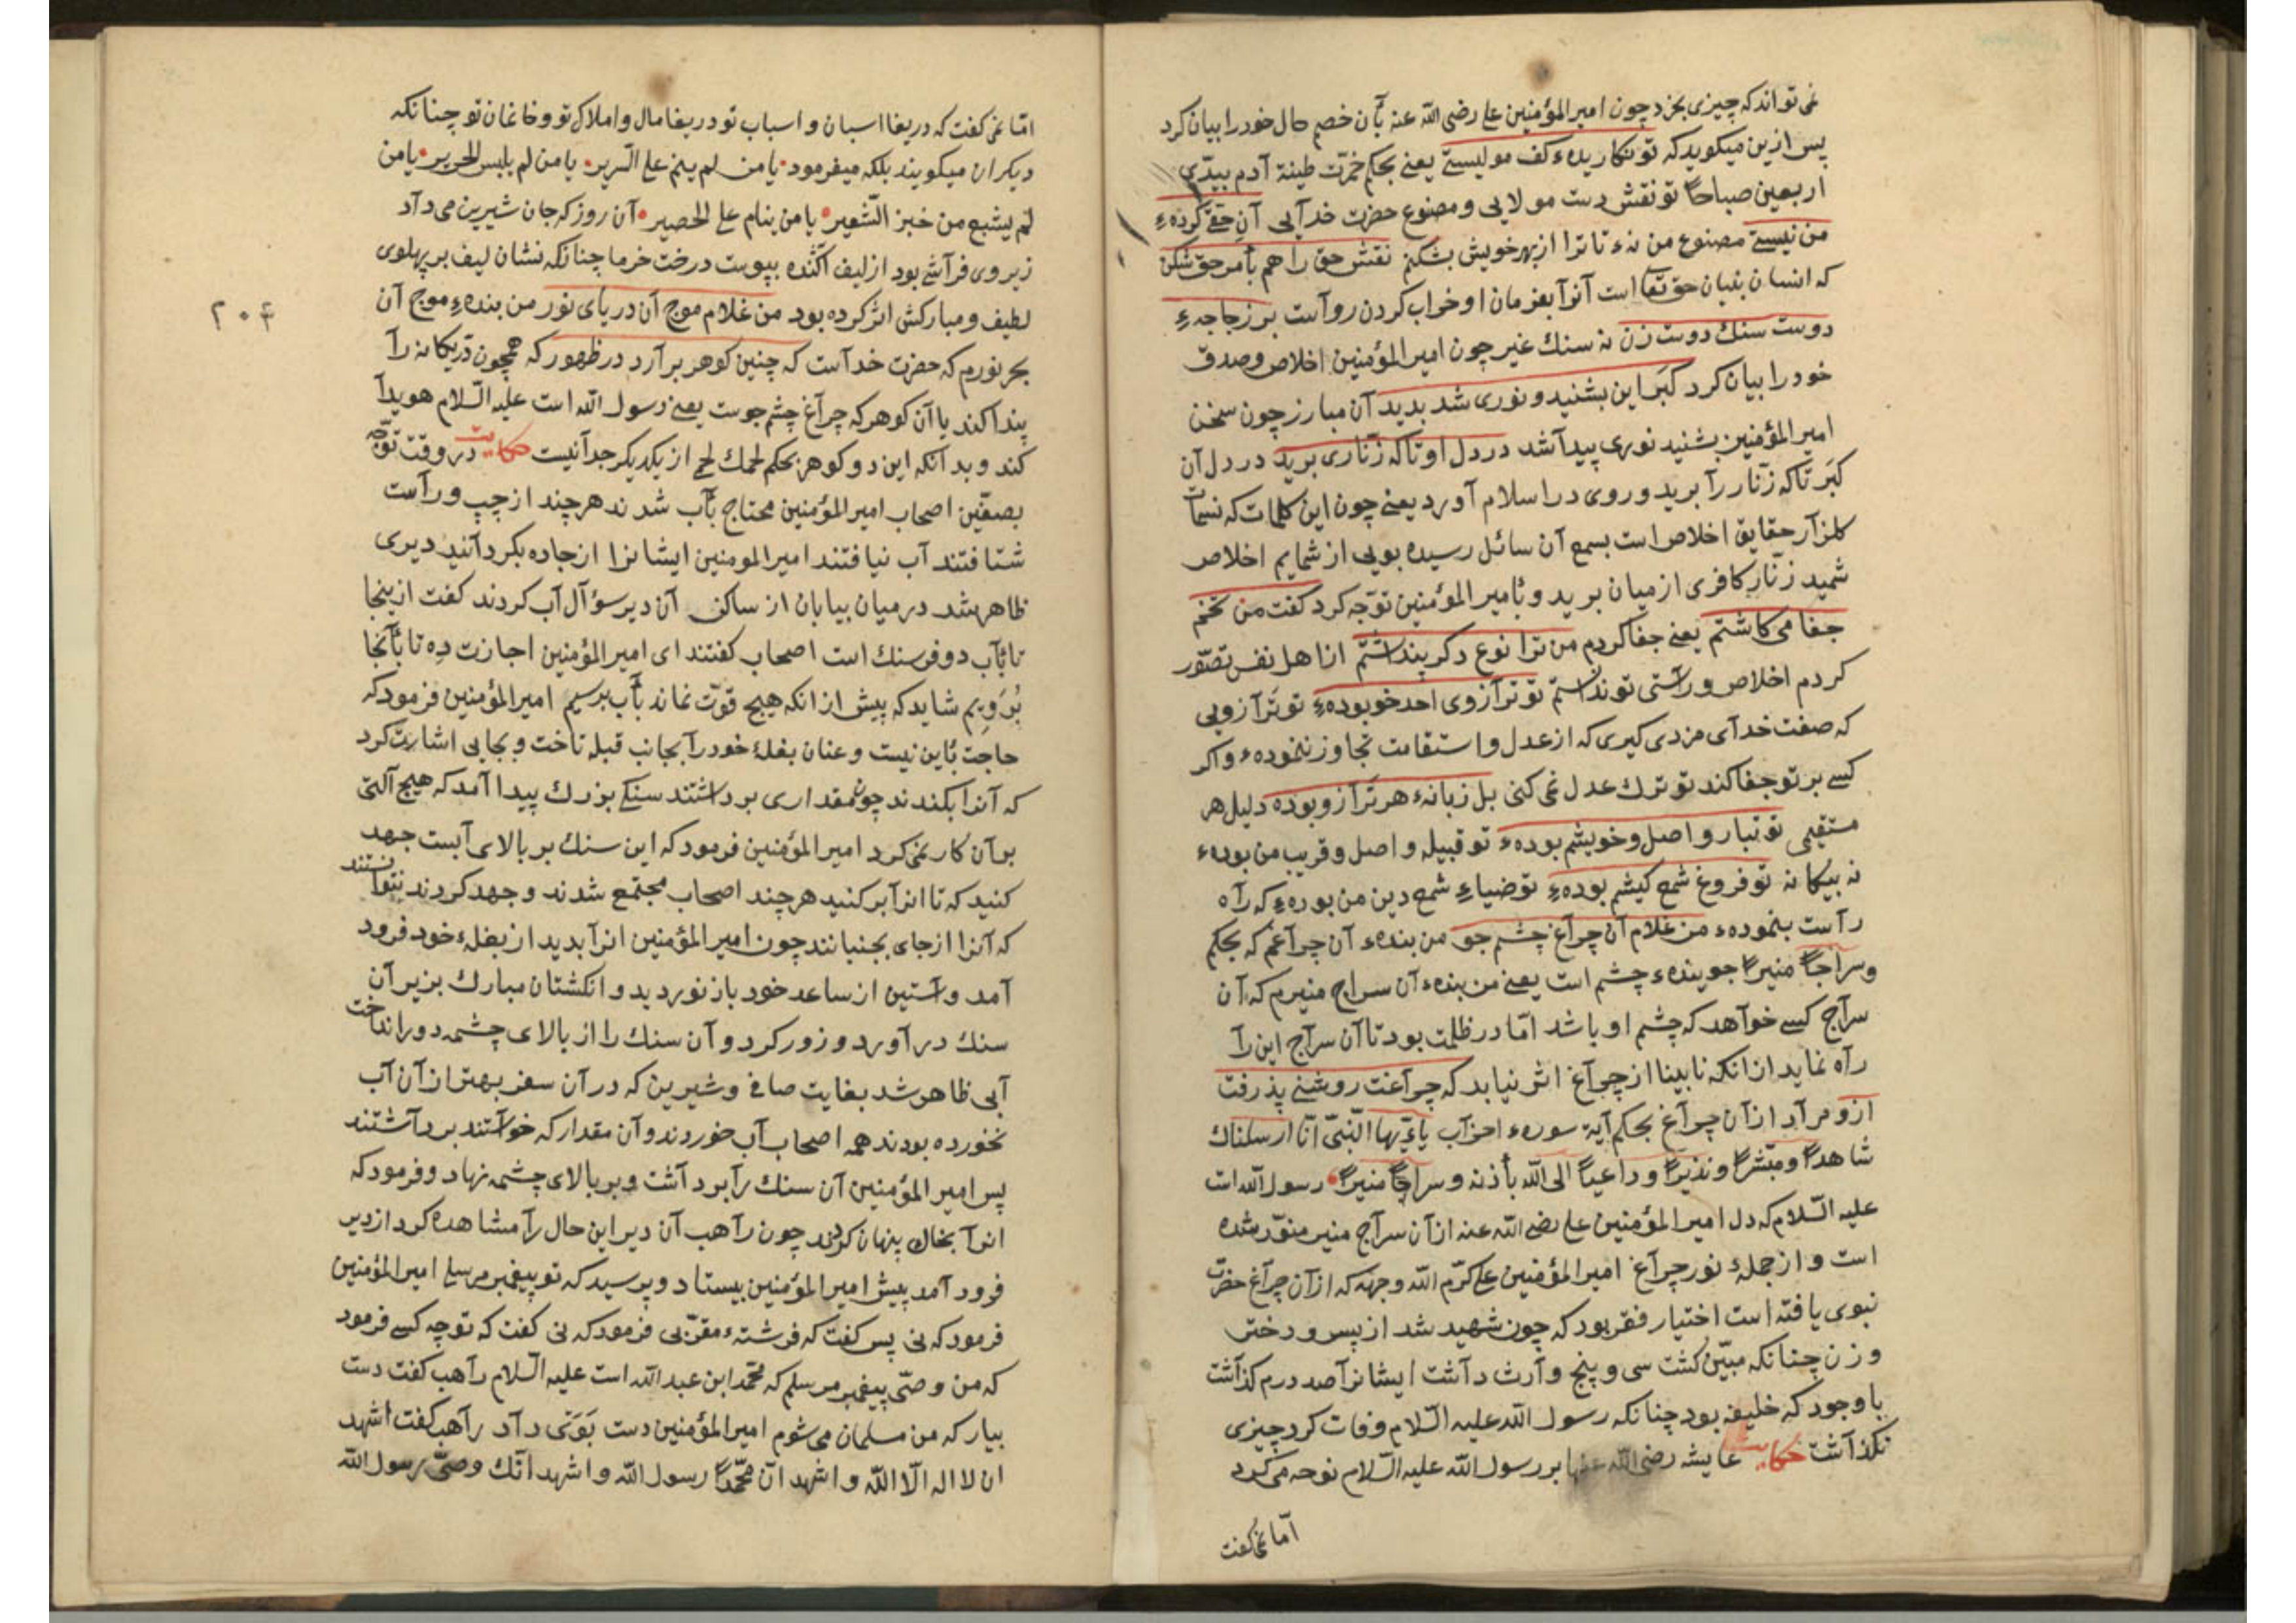 نمی تواند که چیزی بخزد چون امیر المؤمنین علی رضی الله عنه بآن خصم حال خود را بیان کرد
پس ازین میکوید که تو نکاریدهٔ کف مولیستی یعنی بحکم خمّرت طینة آدم بیدّی
اربعین صباحاً تو نقش دست مولایی و مصنوع حضرت خدآیی آنِ حقّی کردهٔ
من نیستی مصنوع من نهٔ تا ترا از بهر خویش بشکنم نقش حق را هم بأمر حق شکن
که انسان بنیان حق تعا است آنرآ بفرمان او خراب کردن روآست بر زجاجهٔ
دوست سنك دوست زن نه سنك غیر چون امیر المؤمنین اخلاص و صدق
خود را بیان کرد کَبَر این بشنید و نوری شد بدید آن مبارز چون سخن
امیر المؤمنین بشنید نوری پیدآ شد در دل او تا که زنّاری برید در دل آن
کَبَر تا که زنّار رآ برید و روی در اسلام آورد یعنی چون این کلمات که نسمات
کلزآر حقایق اخلاص است بسمع آن سائل رسیده بویی از شمایم اخلاص
شمید زنّار کافری از میان برید و بأمیر المؤمنین توّجه کرد کفت من تخم
جفا می کاشتم یعنی جفا کردم من ترا نوع دکر پنداشتم از اهل نفس تصوّر
کردم اخلاص و رآستی تو ندانستم تو ترآزوی احد خو بودهٔ تو ترآزویی
که صفت خدآی مزدی کیری که از عدل و استقامت تجاوز ننمودهٔ و اکر
کسی بر تو جفا کند تو ترك عدل نمی کنی بل زبانهٔ هر ترآزو بوده دلیل هر
مستقیمی تو تبار و اصل و خویشم بودهٔ تو قبیله و اصل و قریب من بودهٔ
نه بیکانه تو فروغ شمع کیشم بودهٔ تو ضیاءِ شمع دین من بودهٔ که رآه
رآست بنمودهٔ من غلام آن چرآغ چشم جو من بندهٔ آن چرآغم که بحکم
وسرآجاً منیراً جویندهٔ چشم است یعنی من بندهٔ آن سراج منیرم که آن
سرآج کسی خوآهد که چشم او باشد امّا در ظلمت بود تا آن سرآج این رآ
رآه نماید از انکه نابینا از چرآغ اثر نیابد که چرآغت روشنی پذرفت
ازو مرآد از آن چرآغ بحکم آیة سورهٔ احزآب یا ایّها النّبیّ انّا ارسلناك
شاهداً ومبّشراً ونذیراً وداعیاً الی الله بأذنه وسراجاً منیراً رسول الله است
علیه السّلام که دل امیر المؤمنین علی رضی الله عنه از آن سرآج منیر منوّر شده
است و از جملهٔ نور چرآغ امیر المؤمنین علی کرّم الله وجهه که از آن چرآغ حضرت
نبوی یافته است اختیار فقر بود که چون شهید شد از پسر و دختر
و زن چنانکه مبیّن کشت سی و پنج وآرث دآشت ایشانرآ صد درم کذآشت
با وجود که خلیفه بود چنانکه رسول الله علیه السّلام وفات کرد چیزی
نکذآشت حکایت عایشه رضی الله عنها بر رسول الله علیه السّلام نوحه می کرد
امّا نمی کفت
امّا نمی کفت که دریغا اسبان و اسباب تو دریغا مال و املاك تو و خانمان تو چنانکه
دیکران میکویند بلکه میفرمود یا من لم ینم علی السّریر یا من لم یلبس الحریر یا من
لم یشبع من خبز الشّعیر یا من ینام علی الحصیر آن روز که جان شیرین می دآد
زیر وی فرآشی بود از لیف آکنده بپوست درخت خرما چنانکه نشان لیف بر پهلوی
لطیف و مبارکش اثر کرده بود من غلام موج آن دریای نور من بندهٔ موج آن
٢٠٤
بحر نورم که حضرت خدآست که چنین کوهر برآرد در ظهور که همچون دُرّ یکانه رآ
پیدا کند یا آن کوهر که چرآغ چشم جوست یعنی رسول الله است علیه السّلام هویدآ
کند و بدآنکه این دو کوهر بحکم لحمك لحمی از یکدیکر جدآ نیست حکایت در وقت توّجه
بصفّین اصحاب امیر المؤمنین محتاج بآب شدند هر چند از چپ و رآست
شتافتند آب نیافتند امیر المومنین ایشانرا از جاده بکردآنید دیری
ظاهر شد در میان بیابان از ساکن آن دیر سؤآل آب کردند کفت از ینجا
تا بآب دو فرسنك است اصحاب کفتند ای امیر المؤمنین اجازت ده تا بآنجا
بُرَویم شاید که پیش از انکه هیج قوّت نماند بآب برسیم امیر المؤمنین فرمود که
حاجت بأین نیست و عنان بغلهٔ خود رآ بجانب قبله تاخت و بجایی اشارت کرد
که آنرا بکندند چون مقداری بردآشتند سنکی بزرك پیدا آمد که هیج آلتی
بر آن کار نمی کرد امیر المؤمنین فرمود که این سنك بر بالای آبست جهد
کنید که تا انرآ بر کنید هر چند اصحاب مجتمع شدند و جهد کردند نتوانستند
که آنرا از جای بجنبانند چون امیر المؤمنین انرآ بدید از بغلهٔ خود فرود
آمد و آستین از ساعد خود باز نوردید و انکشتان مبارك بزیر آن
سنك درآورد و زور کرد و آن سنك را از بالای چشمه دور انداخت
آبی ظاهر شد بغایت صافی و شیرین که در آن سفر بهتر از آن آب
نخورده بودند همه اصحاب آب خوردند و آن مقدار که خوآستند بردآشتند
پس امیر المؤمنین آن سنك رآ بردآشت و بر بالای چشمه نهاد و فرمود که
انرآ بخاك پنهان کردند چون رآهب آن دیر این حال رآ مشاهده کرد از دیر
فرود آمد پیش امیر المؤمنین بیستاد و پرسید که تو پیغمبر مرسلی امیر المؤمنین
فرمود که نی پس کفت که فرشتهٔ مقرّبی فرمود که نی کفت که تو چه کسی فرمود
که من وصّی پیغمبر مرسلم که محمّد ابن عبد الله است علیه السّلام رآهب کفت دست
بیار که من مسلمان می شوم امیر المؤمنین دست بَوَیّ دآد رآهب کفت اشهد
ان لا اله الّا الله و اشهد انّ محمّداً رسول الله و اشهد انّك وصّی رسول الله